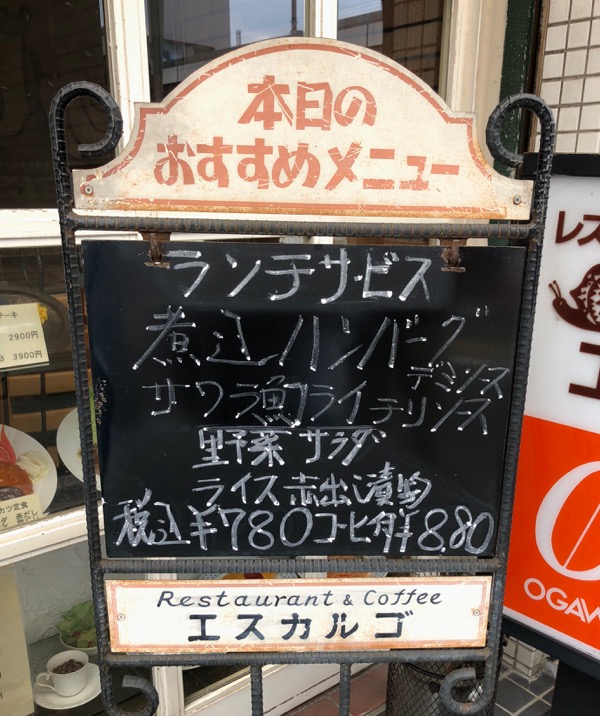 本日の
おすすめメニュー
ランチサービス
煮込ハンバーグ
デミソース
サワラ魚フライ テリソース
野菜サラダ
ライス赤出し漬物
税込¥780コーヒ付¥880
Restaurant & Coffee
エスカルゴ
ーキ
2900円
3900円
カツ定食
赤だし
レス
エ
OGAW